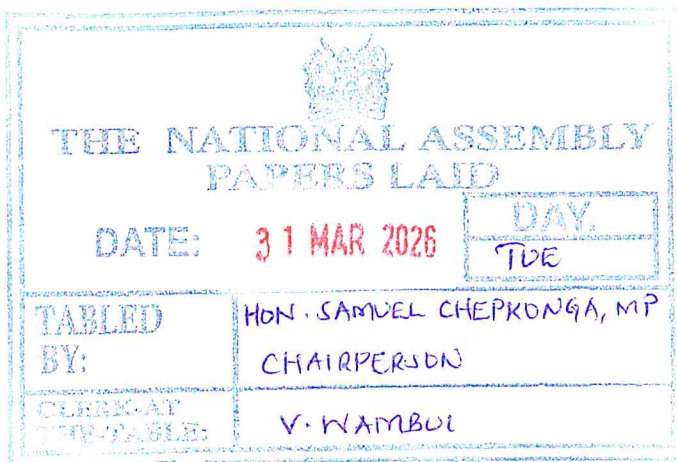 THE NATIONAL ASSEMBLY
PAPERS LAID
DATE: 31 MAR 2026
DAY.
TUE
TABLED BY:
HON. SAMUEL CHEPKONGA, MP
CHAIRPERSON
CLERK-AT THE-TABLE:
V. WAMBUI